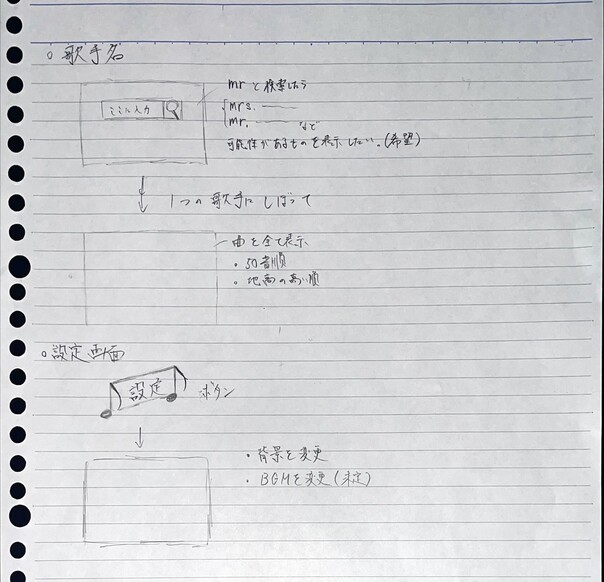 ○ 歌手名
mr と検索したら
ここに入力
mrs. ———
mr. ——— など
可能性があるものを表示したい。(希望)
1つの歌手にしぼって
曲を全て表示
・50音順
・の高い順
○ 設定画面
設定 ボタン
・背景を変更
・BGMを変更(未定)